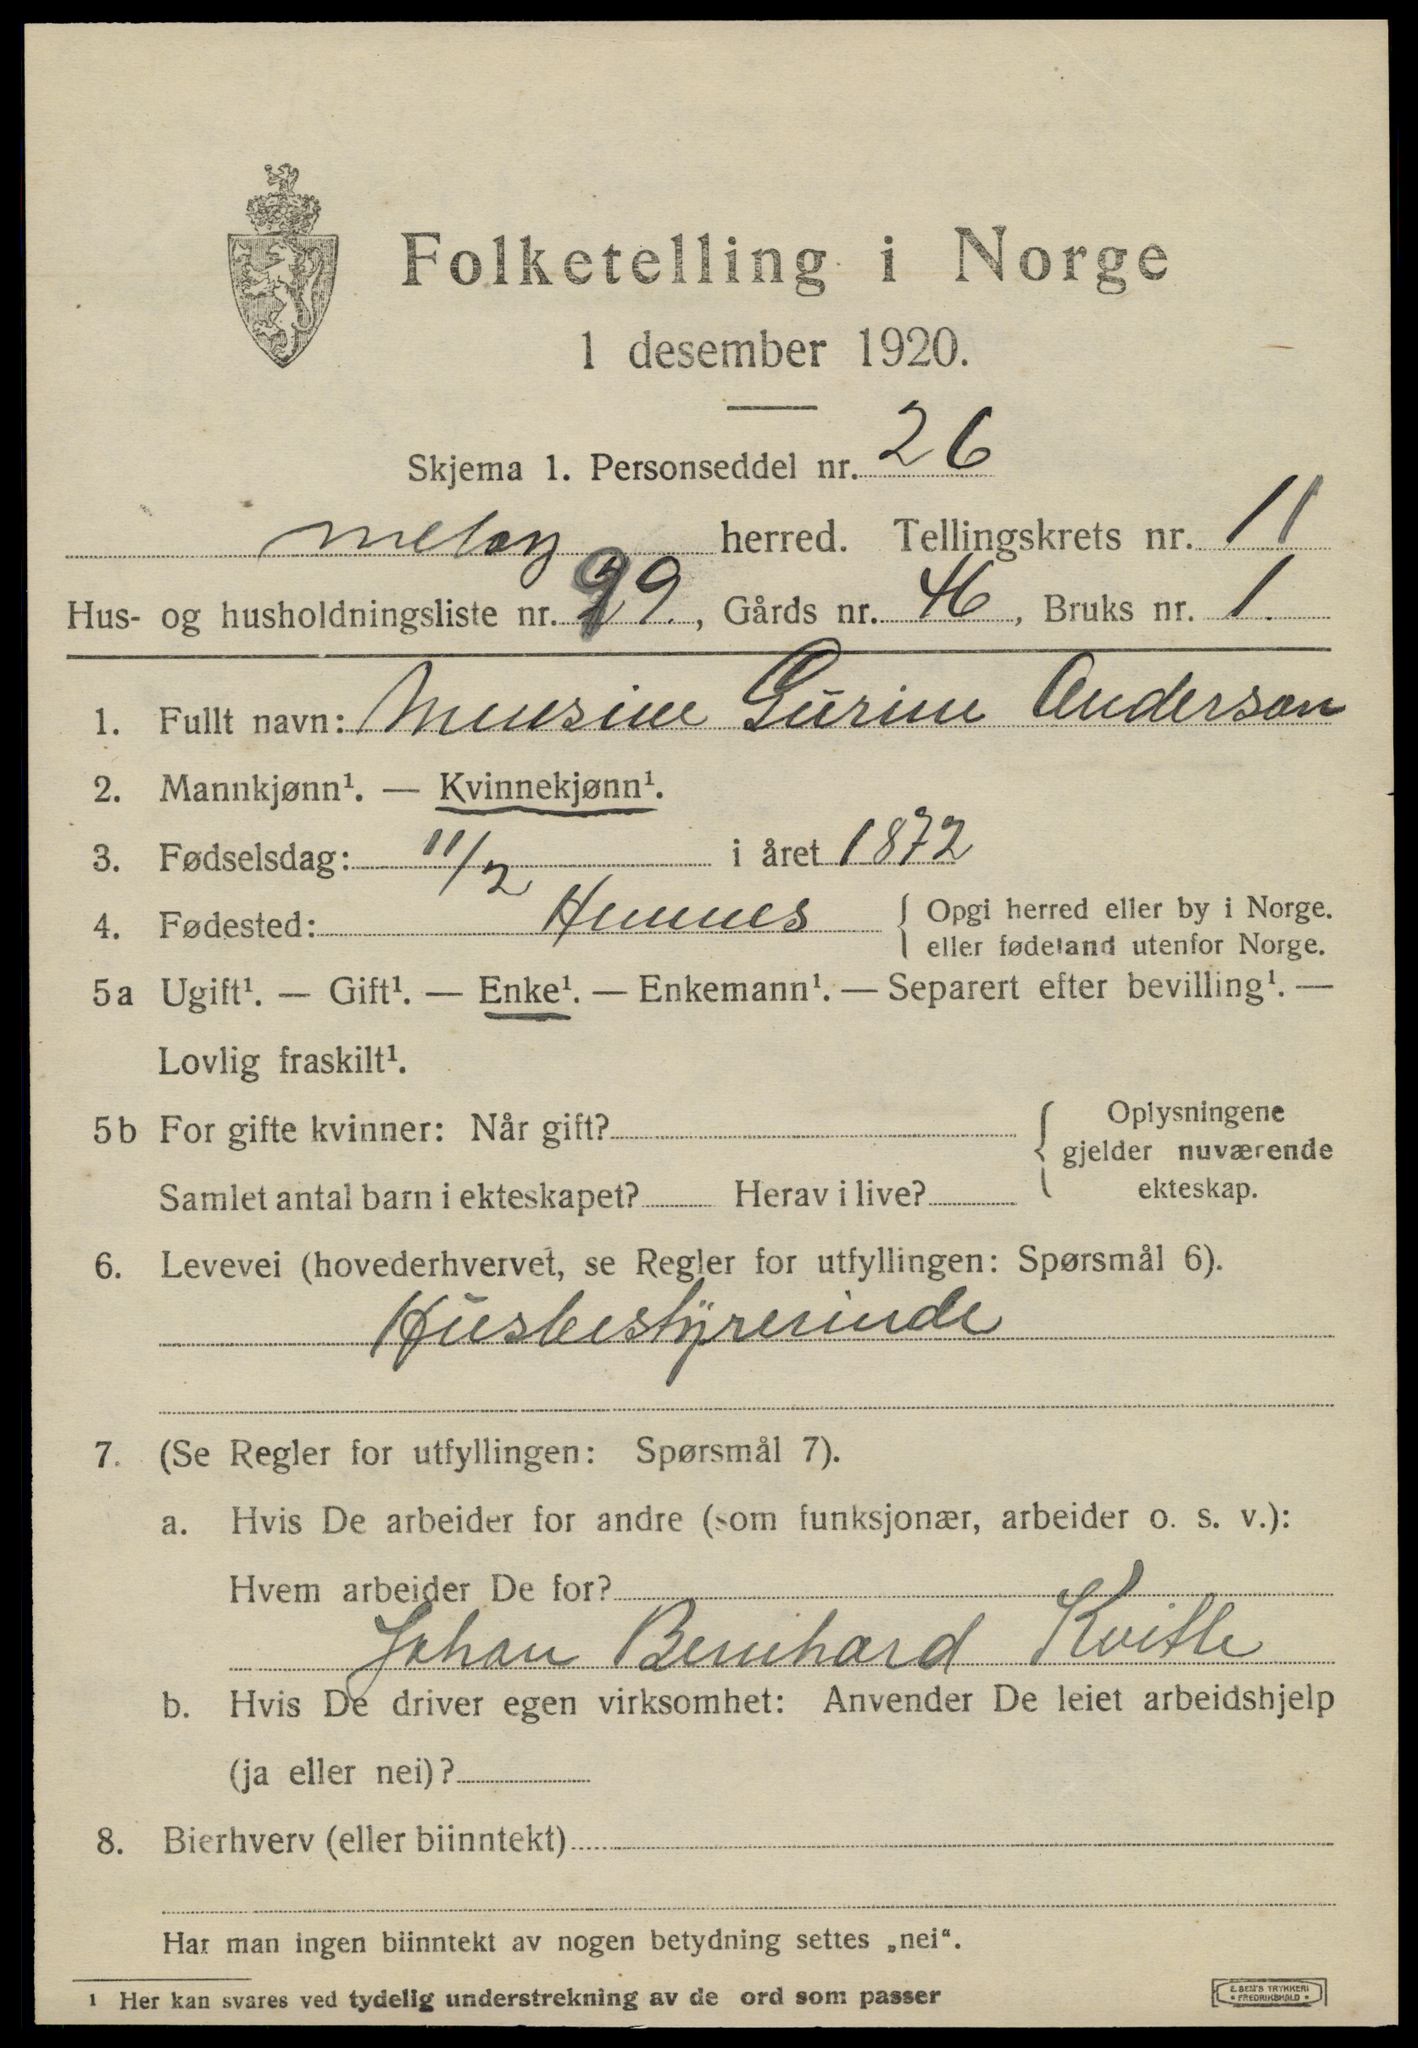 Folketelling i Norge
1 desember 1920.
Skjema 1. Personseddel nr. 26
Meløy herred. Tellingskrets nr. 11
Hus- og husholdningsliste nr. 99., Gårds nr. 46, Bruks nr. 1.
1. Fullt navn: Gurine Anderson
2. Mannkjønn¹. — Kvinnekjønn¹.
3. Fødselsdag: 11/2 i året 1872
4. Fødested: Hemnes { Opgi herred eller by i Norge.
eller fødeland utenfor Norge.
5a Ugift¹. — Gift¹. — Enke¹. — Enkemann¹. — Separert efter bevilling¹. —
Lovlig fraskilt¹.
5b For gifte kvinner: Når gift? { Oplysningene
gjelder nuværende
Samlet antal barn i ekteskapet? Herav i live? ekteskap.
6. Levevei (hovederhvervet, se Regler for utfyllingen: Spørsmål 6).
Husbestyrerinde
7. (Se Regler for utfyllingen: Spørsmål 7).
a. Hvis De arbeider for andre (som funksjonær, arbeider o. s. v.):
Hvem arbeider De for?
Johan Bernhard
b. Hvis De driver egen virksomhet: Anvender De leiet arbeidshjelp
(ja eller nei)?
8. Bierhverv (eller biinntekt)
Har man ingen biinntekt av nogen betydning settes „nei“.
¹ Her kan svares ved tydelig understrekning av de ord som passer
E. SEM'S TRYKKERI
* FREDRIKSHALD *